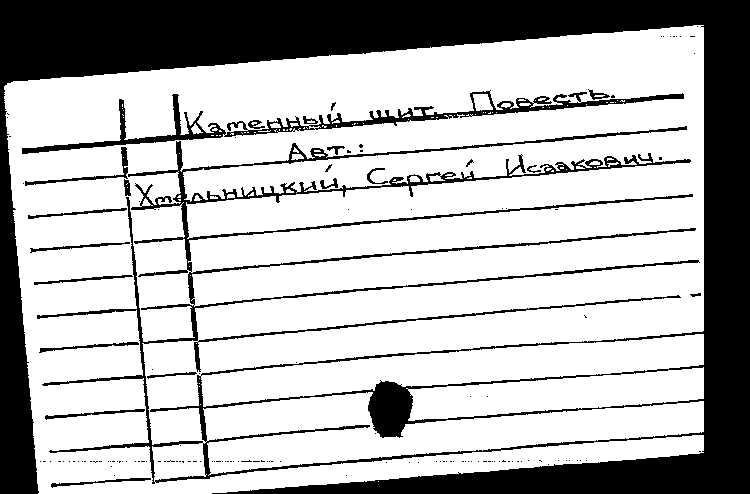 Каменный щит. Повесть.
Авт.:
Хмельницкий, Сергей Исаакович.